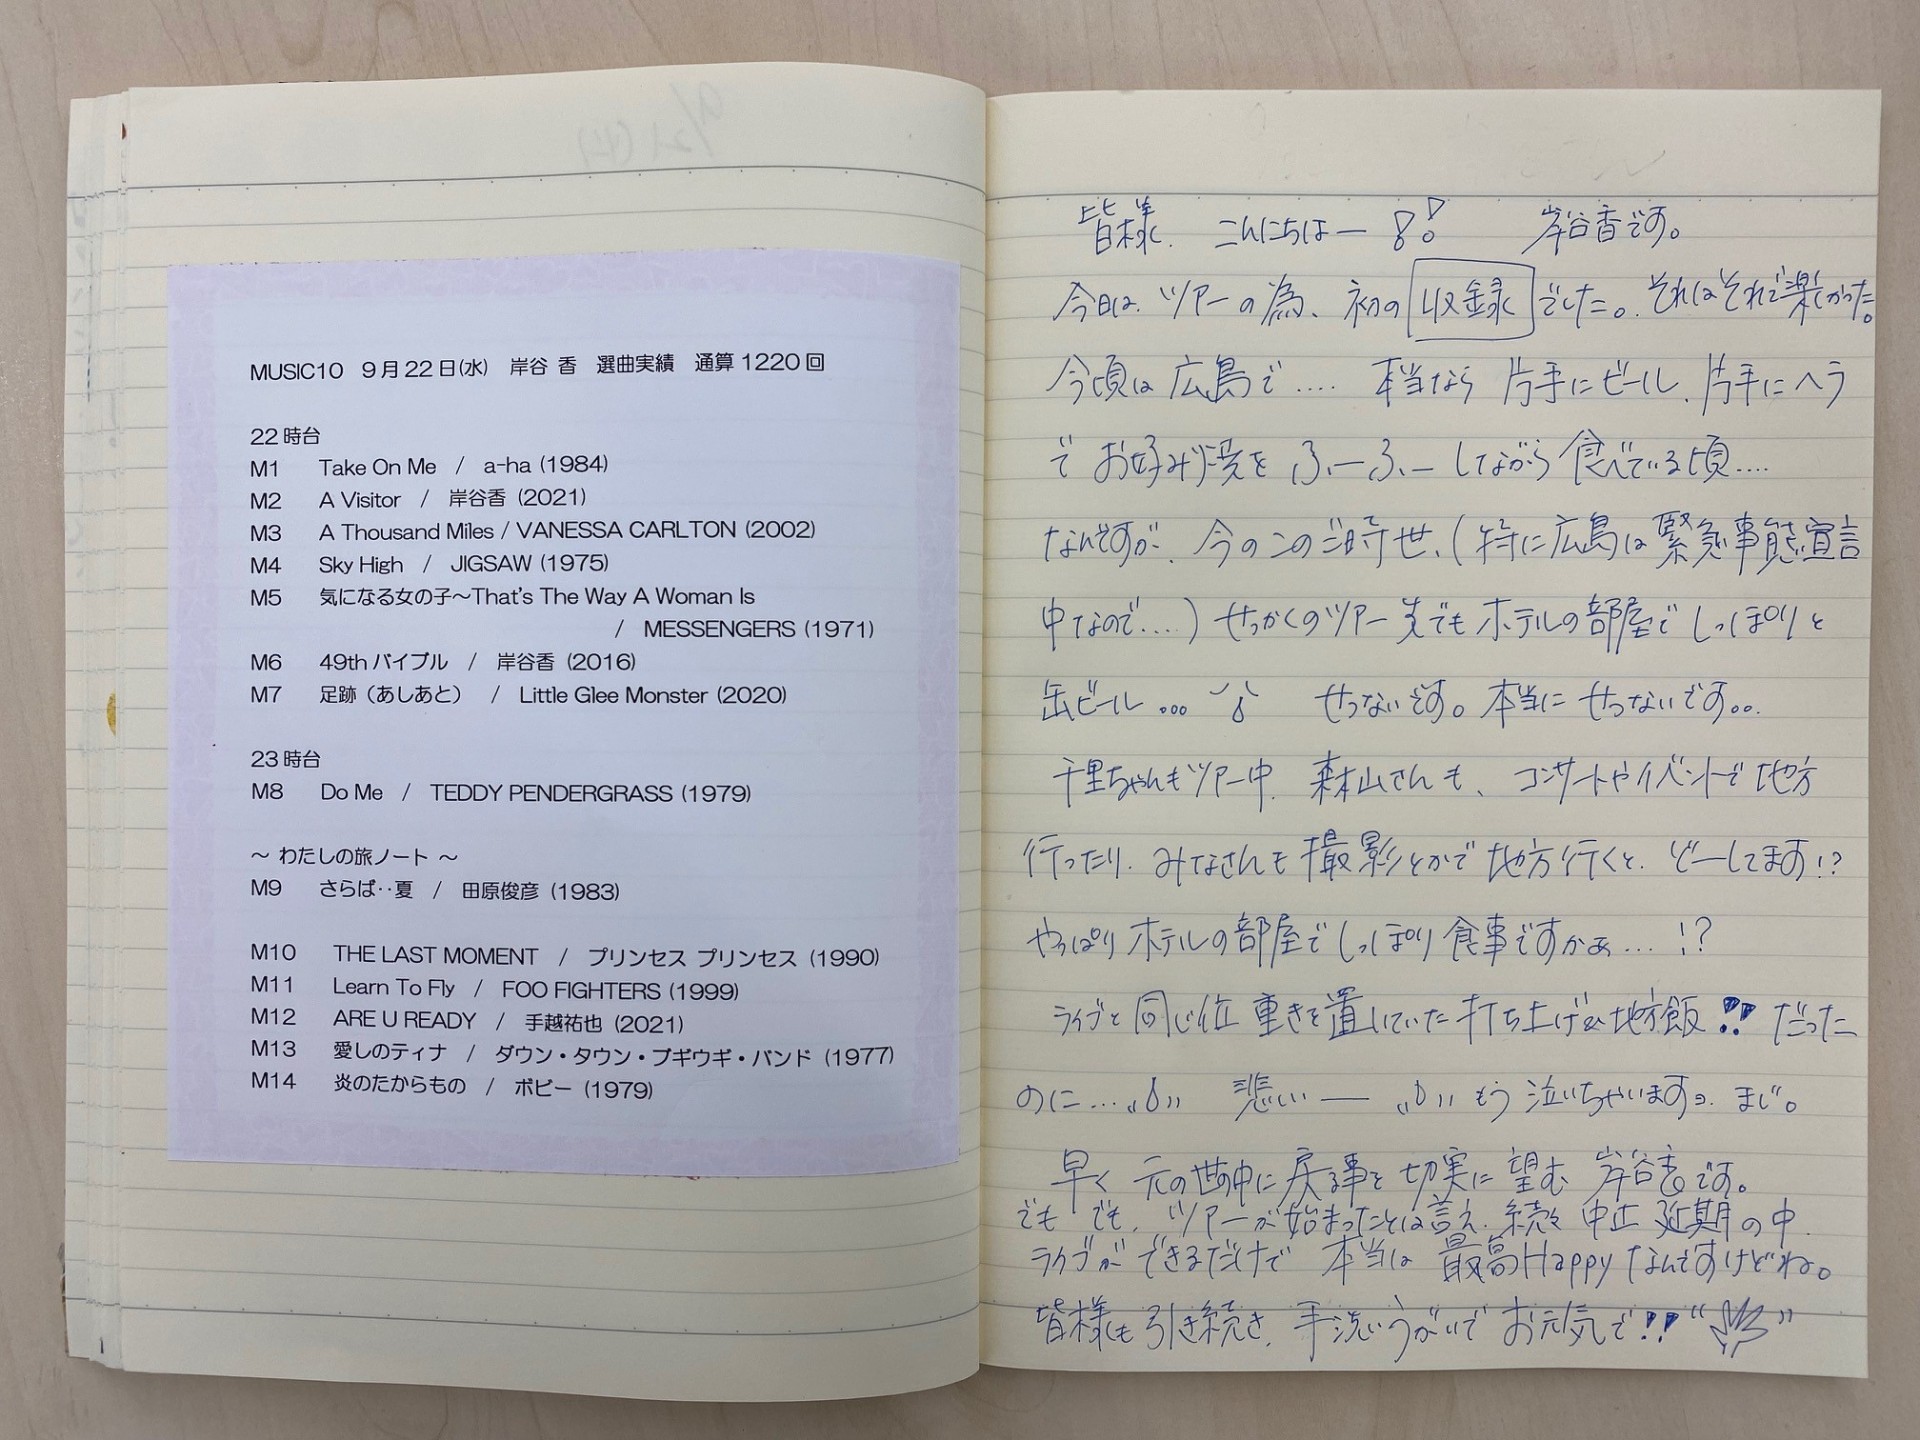 MUSIC10 9月22日(水) 岸谷 香 選曲実績 通算1220回
22時台
M1 Take On Me / a-ha (1984)
M2 A Visitor / 岸谷香 (2021)
M3 A Thousand Miles / VANESSA CARLTON (2002)
M4 Sky High / JIGSAW (1975)
M5 気になる女の子～That's The Way A Woman Is
/ MESSENGERS (1971)
M6 49thバイブル / 岸谷香 (2016)
M7 足跡（あしあと） / Little Glee Monster (2020)
23時台
M8 Do Me / TEDDY PENDERGRASS (1979)
～ わたしの旅ノート ～
M9 さらば‥夏 / 田原俊彦 (1983)
M10 THE LAST MOMENT / プリンセス プリンセス (1990)
M11 Learn To Fly / FOO FIGHTERS (1999)
M12 ARE U READY / 手越祐也 (2021)
M13 愛しのティナ / ダウン・タウン・ブギウギ・バンド (1977)
M14 炎のたからもの / ボビー (1979)
皆様、こんにちはー!! 岸谷香です。
今日は、ツアーの為、初の収録でした。それはそれで楽しかった。
今頃は広島で‥‥ 本当なら片手にビール、片手にヘラ
でお好み焼をふーふーしながら食べている頃‥‥
なんですが、今のこのご時世、(特に広島は緊急事態宣言
中なので‥‥)せっかくのツアー先でもホテルの部屋でしっぽりと
缶ビール… せつないです。本当にせつないです。。
千里ちゃんもツアー中、森山さんも、コンサートやイベントで地方
行ったり、みなさんも撮影とかで地方行くと、どーしてます!?
やっぱりホテルの部屋でしっぽり食事ですかぁ… !?
ライブと同じ位重きを置いていた打ち上げ&地方飯!! だった
のに… 悲しいー もう泣いちゃいますョ。まじ。
早く元の世の中に戻る事を切実に望む岸谷香です。
でもでも、ツアーが始まったとは言え、続々中止延期の中、
ライブができるだけで本当は最高Happyなんですけどね。
皆様も引き続き、手洗いうがいでお元気で!!